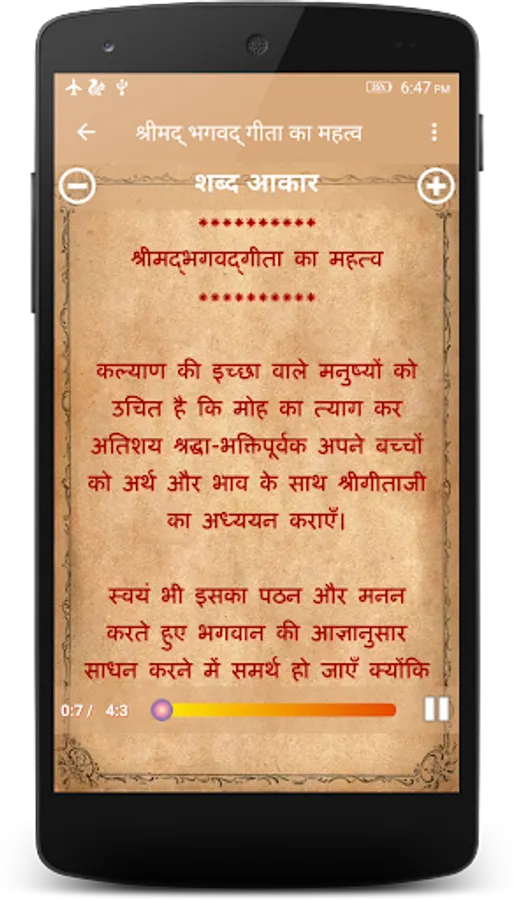 6:47 PM
श्रीमद् भगवद् गीता का महत्व
शब्द आकार
**********
श्रीमद्‌भगवद्‌गीता का महत्व
**********
कल्याण की इच्छा वाले मनुष्यों को
उचित है कि मोह का त्याग कर
अतिशय श्रद्धा-भक्तिपूर्वक अपने बच्चों
को अर्थ और भाव के साथ श्रीगीताजी
का अध्ययन कराएँ।
स्वयं भी इसका पठन और मनन
करते हुए भगवान की आज्ञानुसार
साधन करने में समर्थ हो जाएँ क्योंकि
0:7 / 4:3